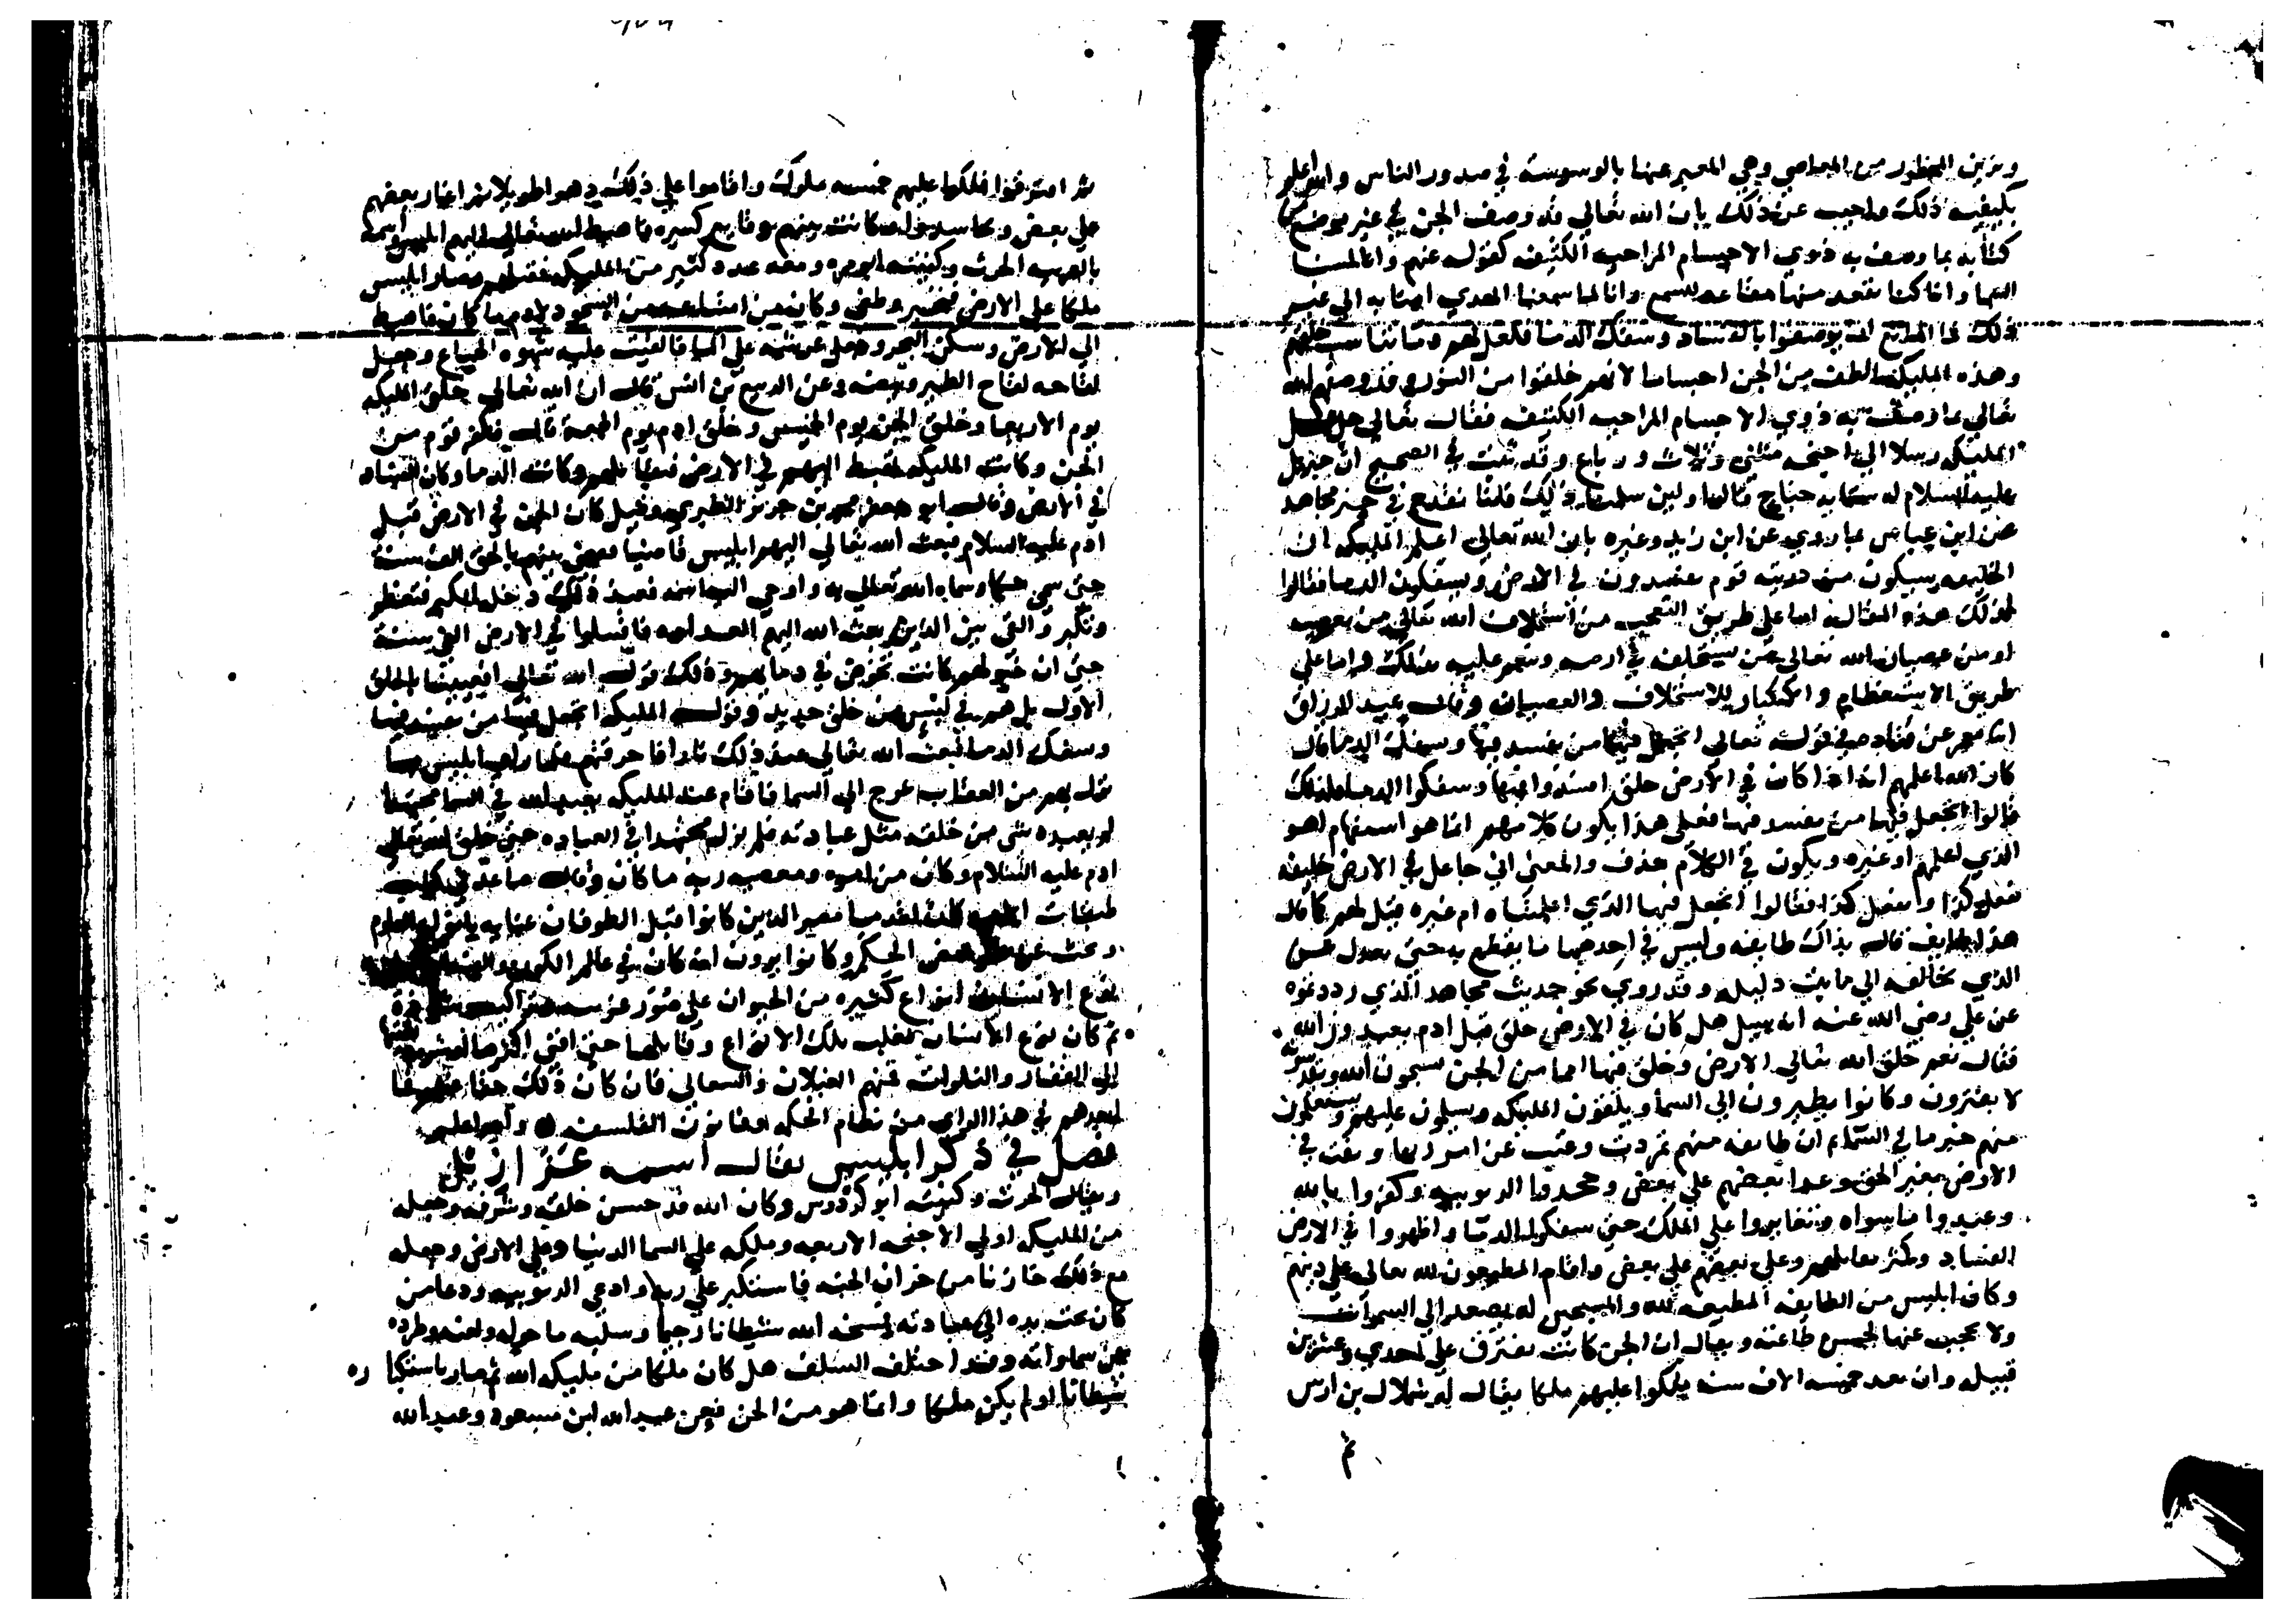 ويزين المحظور من المعاصي وهي المعبر عنها بالوسوسة في صدور الناس والله اعلم
بكيفيه ذلك واجيب عن ذلك بان الله تعالي قد وصف الجن في غير موضع
كتابه بما وصف به ذوي الاجسام المراحيه الكثيفه كقوله عنهم وانا لمسنا
السما وانا كنا نقعد منها مقاعد للسمع وانا لما سمعنا الهدي امنا به الي غير
ذلك فما المانع ان يوصفوا بالفساد وسفك الدما فكعل لهم وما تناسب خلقهم
وهذه المليكه الطف من الجن اجساما لانهم خلقوا من النور وقد وصفهم الله
تعالي بما وصف به ذوي الاجسام المراحيه الكثيفه فقال تعالي جاعل
المليكه رسلا اولي اجنحه مثني وثلاث ورباع وقد ثبت في الصحيح ان جبريل
عليه السلام له ستمايه جناح قالوا ولين سلمنا ذلك قلنا نقدح في خبر مجاهد
عن ابن عباس بما روي عن ابن زيد وغيره بان الله تعالي اعلم المليكه ان
الخليفه سيكون من ذريته قوم يفسدون في الارض ويسفكون الدما فقالوا
لذلك هذه المقاله اما علي طريق التعجب من استخلاف الله تعالي من يعصيه
او من عصيان الله تعالي من يستخلفه في ارضه وينعم عليه بذلك واما علي
طريق الاستعظام والاكبار للاستخلاف والعصيان وقال عبد الرزاق
انا معمر عن قتاده في قوله تعالي اتجعل فيها من يفسد فيها ويسفك الدما قال
كان الله اعلمهم انه اذا كان في الارض خلق افسدوا فيها وسفكوا الدما فلذلك
قالوا اتجعل فيها من يفسد فيها فعلي هذا يكون كلامهم انما هو استفهام اهو
الذي اعلمهم او غيره ويكون في الكلام حذف والمعني اني جاعل في الارض خليفه
يفعل كذا ويفعل كذا فقالوا اتجعل فيها الذي اعلمتناه ام غيره قيل لهم كما قال
هذا طايفه قال بذاك طايفه وليس في احدهما ما يقطع به حتي يعدل عن
الذي يخالفه الي ما يثبت دليله وقد روي نحو حديث مجاهد الذي رددتموه
عن علي رضي الله عنه انه سيل هل كان في الارض خلق قبل ادم يعبدون الله
فقال نعم خلق الله تعالي الارض وخلق فيها امما من الجن يسبحون الله ويقدسونه
لا يفترون وكانوا يطيرون الي السما ويلقون المليكه ويسلمون عليهم ويستعلمون
منهم خبر ما في السماء ثم ان طايفه منهم تمردت وعتت عن امر ربها وبغت في
الارض بغير الحق وعدا بعضهم علي بعض وجحدوا الربوبيه وكفروا بالله
وعبدوا ما سواه وتغايروا علي الملك حتي سفكوا الدما واظهروا في الارض
الفساد وكثر تقاتلهم وعلي بعضهم علي بعض واقام المطيعون لله تعالي علي دينهم
وكان ابليس من الطايفه المطيعه لله والمسبحين له يصعد الي السموات
ولا يحجب عنها لحسن طاعته ويقال ان الجن كانت تفترق علي احدي وعشرين
قبيله وان بعد خمسه الاف سنه ملكوا عليهم ملكا يقال له شملال بن ارس
ثم
ثم افترقوا فملكوا عليهم خمسه ملوك واقاموا علي ذلك دهرا طويلا ثم اغار بعضهم
علي بعض وتحاسدوا فكانت بينهم وقايع كثيره فاهبط الله تعالي اليهم ابليس واسمه
بالعربيه الحرث وكنيته ابو مره ومعه عدد كثير من المليكه فقتلهم وصار ابليس
ملكا علي الارض فتجبر وطغي وكان من امتناعه من السجود لادم ما كان فاهبط
الي الارض وسكن البحر وجعل عرشه علي الما فالقيت عليه شهوه الجماع وجعل
لقاحه لقاح الطير وبيضه وعن الربيع بن انس قال ان الله تعالي خلق المليكه
يوم الاربعا وخلق الجن يوم الخميس وخلق ادم يوم الجمعه قال فكفر قوم من
الجن وكانت المليكه تهبط اليهم في الارض فتقاتلهم وكانت الدما وكان الفساد
في الارض وقال ابو جعفر محمد بن جرير الطبري وقيل كان الجن في الارض قبل
ادم عليه السلام فبعث الله تعالي اليهم ابليس قاضيا فقضي بينهم بالحق الف سنة
حتي سمي حكما وسماه الله تعالي به واوحي اليه اسمه فعند ذلك دخله الكبر فتعظم
وتكبر والقي بين الذين بعث الله اليهم العداوه فاقتتلوا في الارض الفي سنة
حتي ان خيولهم كانت تخوض في دمايهم وذلك قوله الله تعالي افعيينا بالخلق
الاول بل هم في لبس من خلق جديد وقول المليكه اتجعل فيها من يفسد فيها
ويسفك الدما فبعث الله تعالي عند ذلك نارا فاحرقتهم فلما راي ابليس ما
نزل بهم من العذاب عرج الي السما فاقام عند المليكه يعبد الله في السما مجتهدا
لم يعبده شي من خلقه مثل عبادته فلم يزل مجتهدا في العباده حتي خلق الله تعالي
ادم عليه السلام وكان من امره ومعصيه ربه ما كان وقال صاعد في كتاب
طبقات الامم كان لقدما مصر الذين كانوا قبل الطوفان عنايه بانواع العلوم
وبحث عن غوامض الحكم وكانوا يرون انه كان في عالم الكون والفساد
نوع الانسان انواع كثيره من الحيوان علي صور غريبه
ثم كان نوع الانسان فغلب تلك الانواع وقاتلها حتي افني اكثرها
الي القفار والفلوات فمنهم الغيلان والسعالي فان كان ذلك حقا
ابعدهم في هذا الراي من نظام الحكمه وقانون الفلسفه والله اعلم
فصل في ذكر ابليس يقال اسمه عزازيل
ويقال الحرث وكنيته ابو كردوس وكان الله قد حسن خلقه وشرفه وجعله
من المليكه اولي الاجنحه الاربعه وملكه علي السما الدنيا وعلي الارض وجعله
مع ذلك خازنا من خزان الجنه فاستكبر علي ربه وادعي الربوبيه ودعا من
كان تحت يده الي عبادته فمسخه الله شيطانا رجيما وسلبه ما خوله ولعنه وطرده
عن سماواته وقد اختلف السلف هل كان ملكا من مليكه الله ثم صار باستكباره
شيطانا او لم يكن ملكا وانما هو من الجن فعن عبد الله ابن مسعود وعبد الله